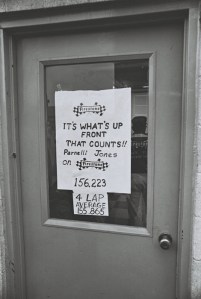 Firestone
IT'S WHAT'S UP
FRONT
THAT COUNTS!!
Parnelli Jones
on Firestone
156,223
4 LAP
AVERAGE
155.865